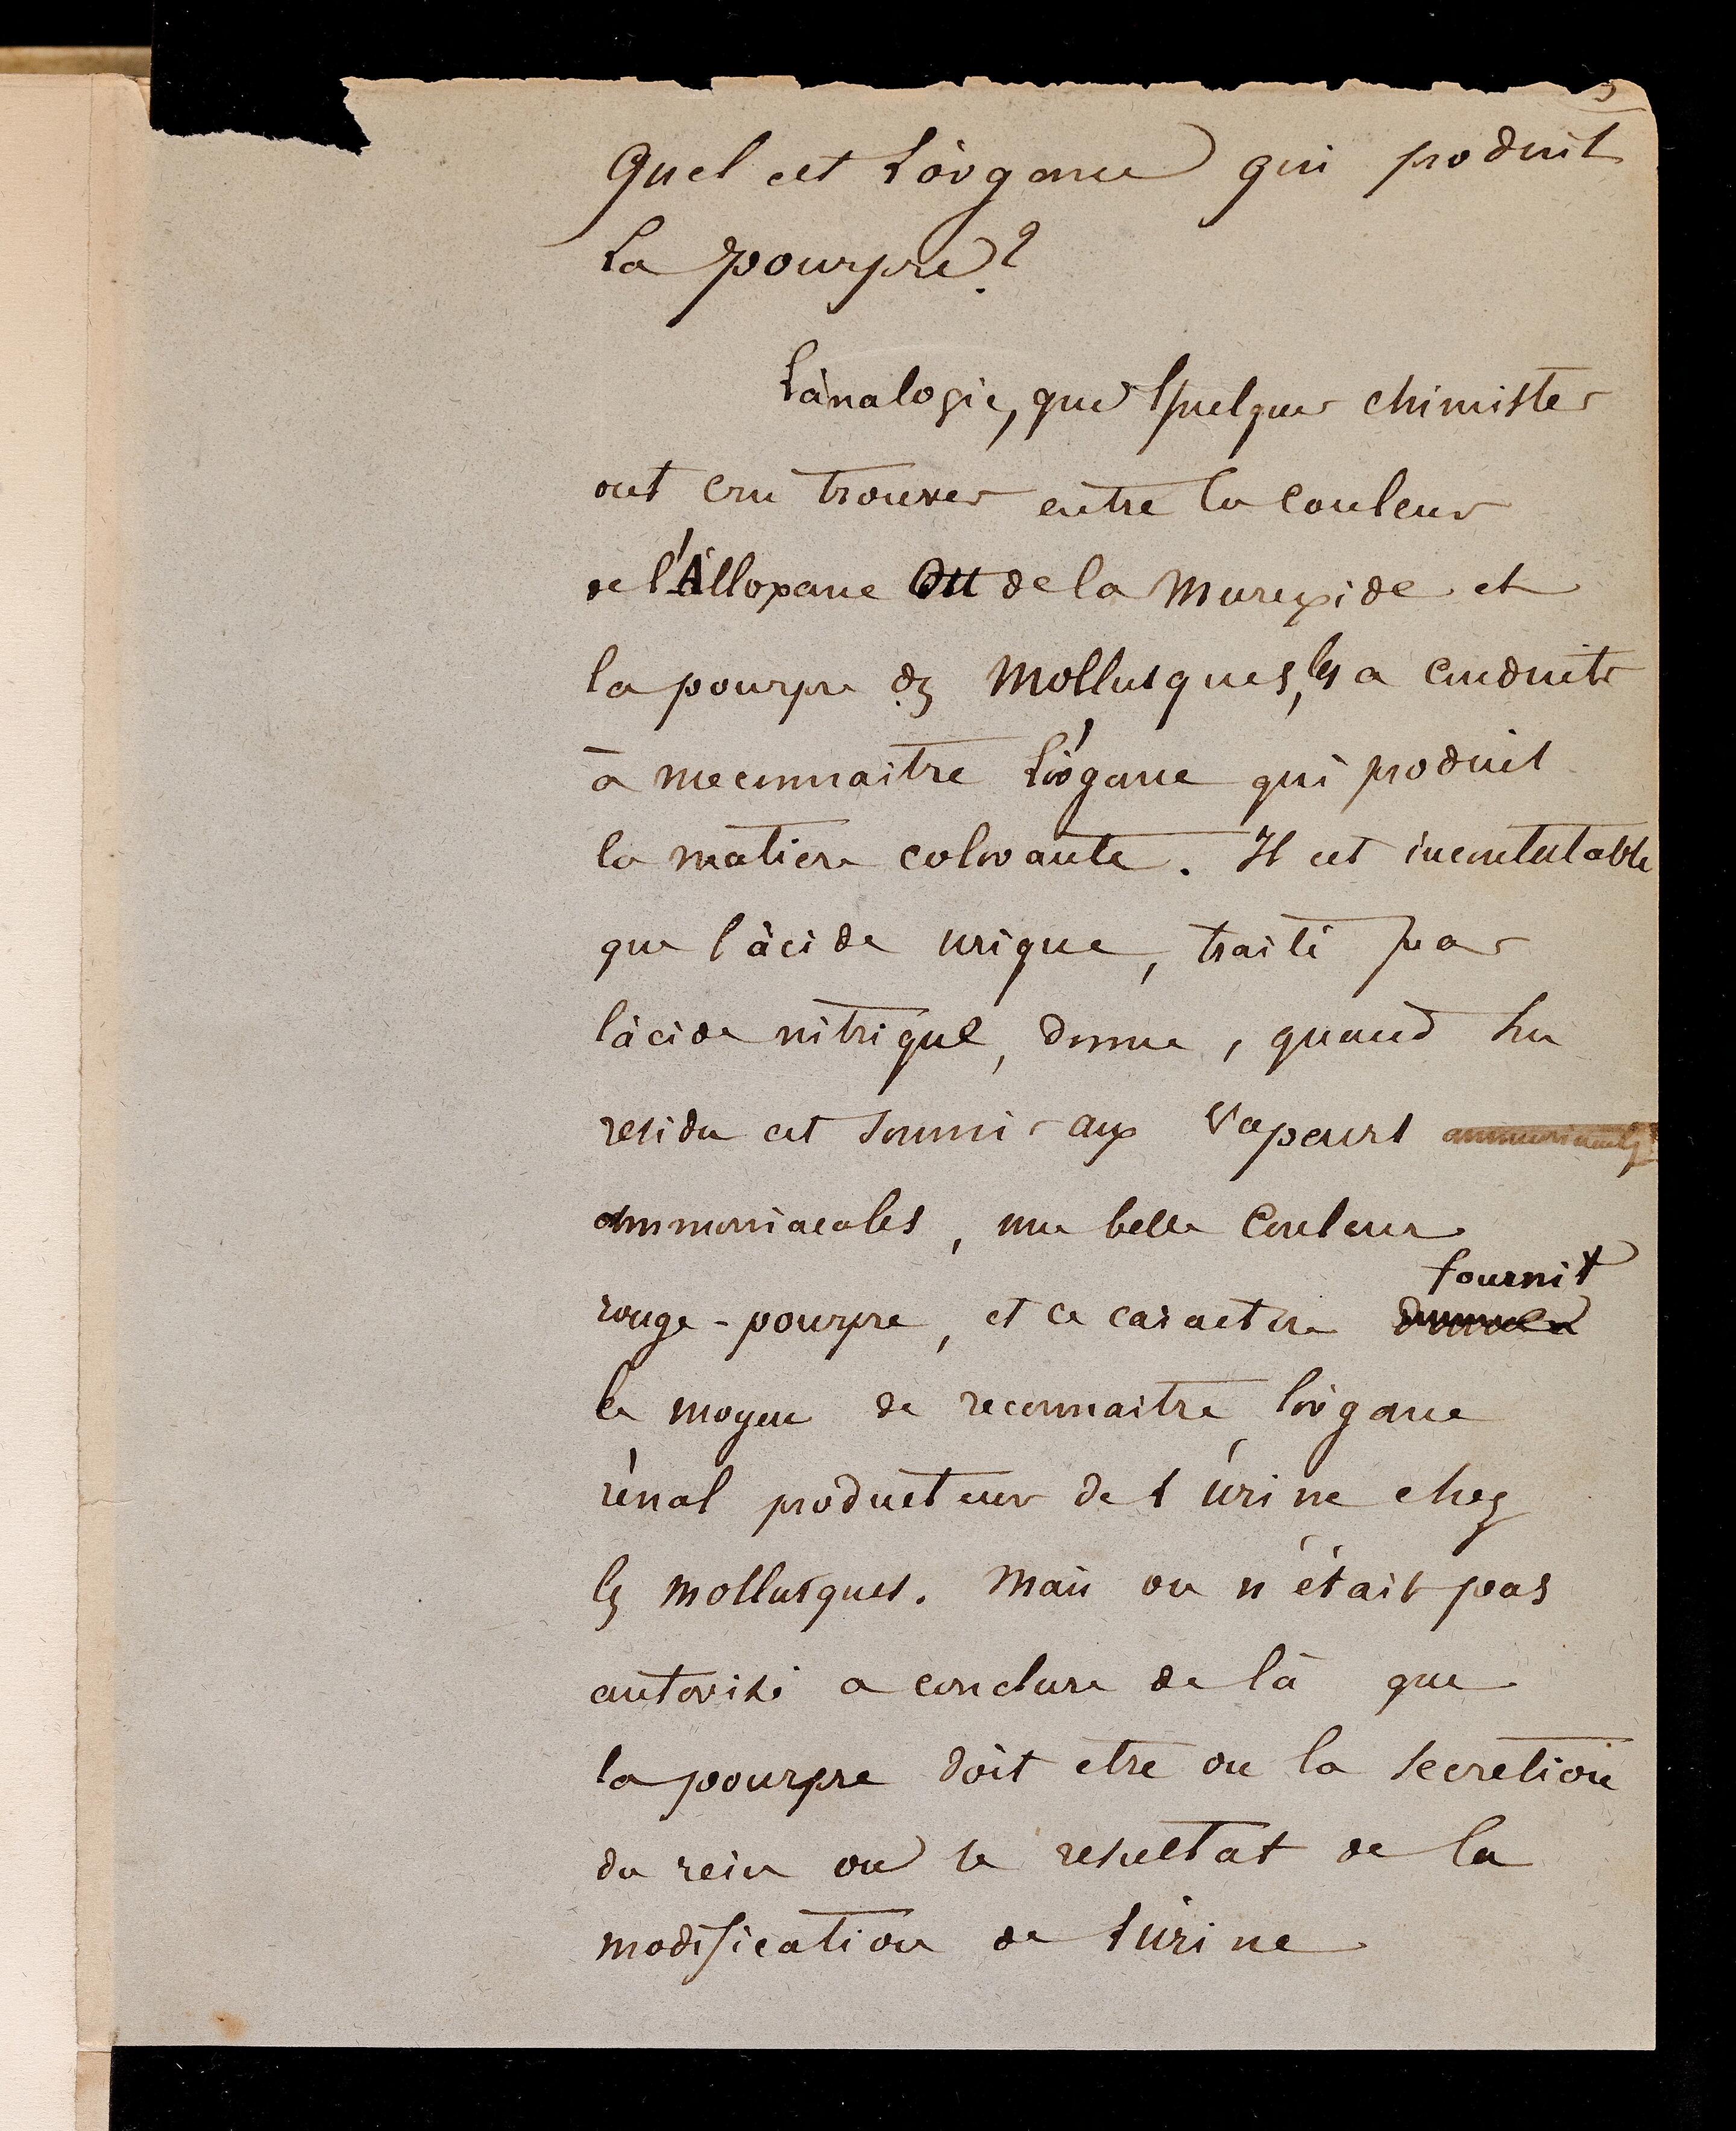 Quel est l'organe qui produit
la pourpre?
L'analogie, que quelques chimistes
ont cru trouver entre la couleur
de l'Alloxane ou de la Murexide et
la pourpre des Mollusques, les a conduits
à meconnaitre l'organe qui produit
la matiere colorante. Il est incontestable
que l'acide urique, traité par
l'acide nitrique, donne, quand son
residu est soumis aux vapeurs ammoniacales
ammoniacales, une belle couleur
fournit
rouge-pourpre, et ce caractere
le moyen de reconnaitre l'organe
rénal producteur de l'urine chez
les mollusques. Mais on n'était pas
autorisé a conclure de là que
la pourpre doit etre ou la secretion
du rein ou le resultat de la
modification de l'urine